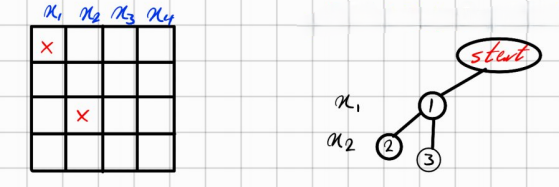 x₁ x₂ x₃ x₄
×
×
start
x₁ 1
x₂ 2 3